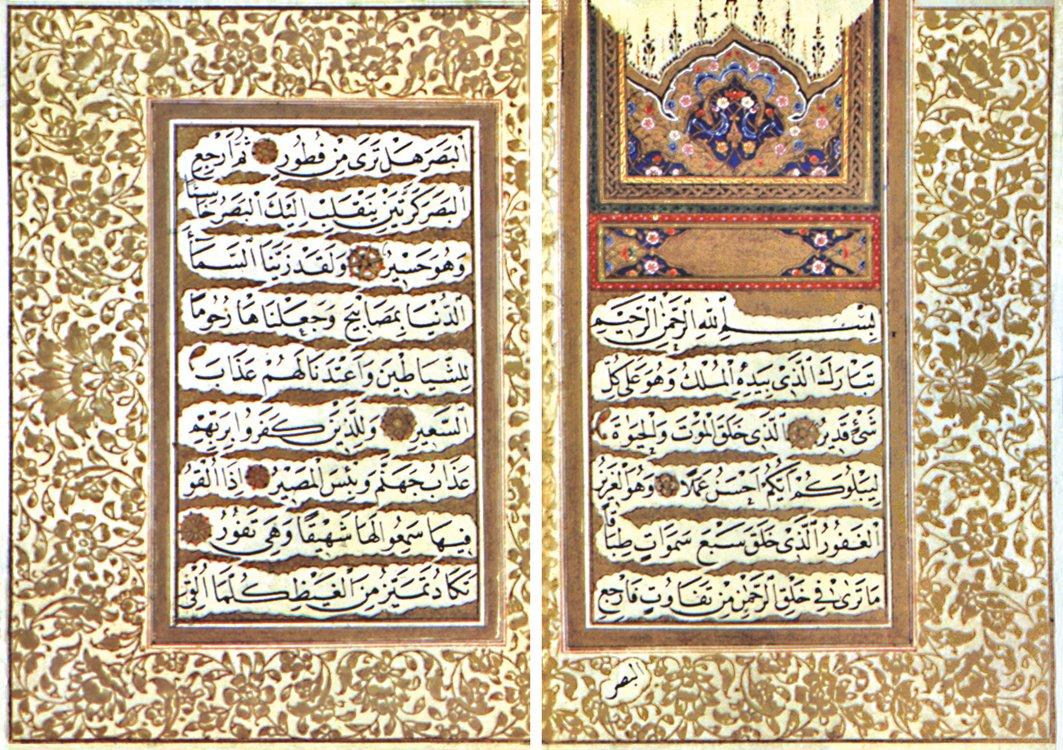 بِسْمِ اللهِ الرَّحْمٰنِ الرَّحِيمِ
تَبَارَكَ الَّذِي بِيَدِهِ الْمُلْكُ وَهُوَ عَلَى كُلِّ
شَئٍ قَدِيرٌ الَّذِي خَلَقَ الْمَوْتَ وَالْحَيٰوةَ
لِيَبْلُوَكُمْ اَيُّكُمْ اَحْسَنُ عَمَلًا وَهُوَ الْعَزِيزُ
الْغَفُورُ الَّذِي خَلَقَ سَبْعَ سَمٰوَاتٍ طِبَاقًا
مَا تَرٰى فِي خَلْقِ الرَّحْمٰنِ مِنْ تَفَاوُتٍ فَارْجِعِ
البصر
الْبَصَرَ هَلْ تَرٰى مِنْ فُطُورٍ ثُمَّ ارْجِعِ
الْبَصَرَ كَرَّتَيْنِ يَنْقَلِبْ اِلَيْكَ الْبَصَرُ خَاسِئًا
وَهُوَ حَسِيرٌ وَلَقَدْ زَيَّنَّا السَّمَاءَ
الدُّنْيَا بِمَصَابِيحَ وَجَعَلْنَاهَا رُجُومًا
لِلشَّيَاطِينِ وَاَعْتَدْنَا لَهُمْ عَذَابَ
السَّعِيرِ وَلِلَّذِينَ كَفَرُوا بِرَبِّهِمْ
عَذَابُ جَهَنَّمَ وَبِئْسَ الْمَصِيرُ اِذَا اُلْقُوا
فِيهَا سَمِعُوا لَهَا شَهِيقًا وَهِيَ تَفُورُ
تَكَادُ تَمَيَّزُ مِنَ الْغَيْظِ كُلَّمَا اُلْقِيَ